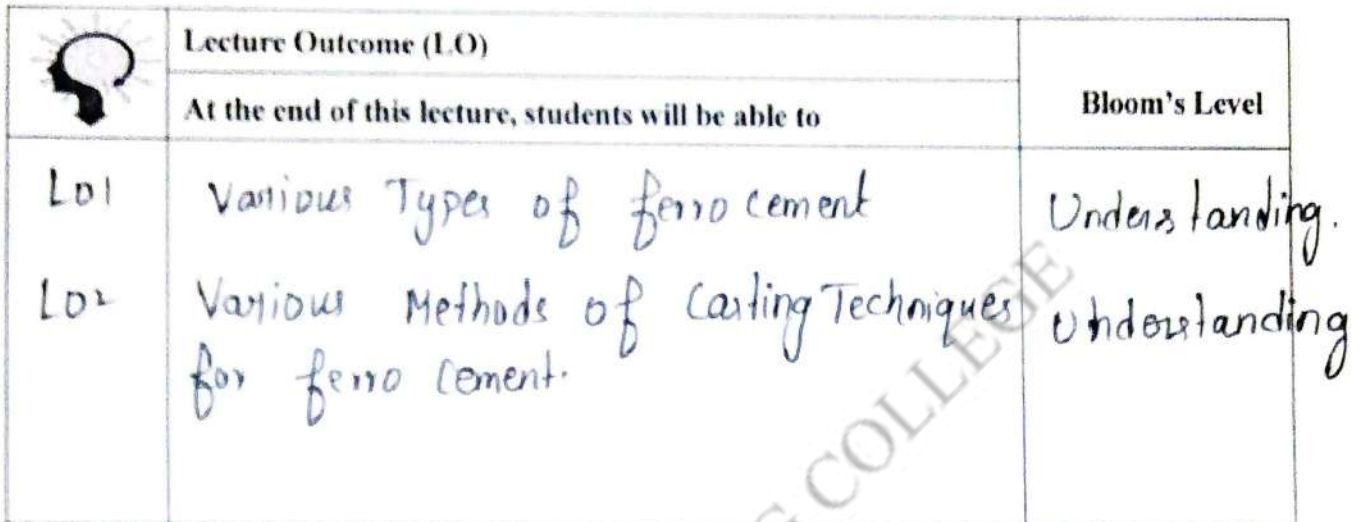 Lecture Outcome (LO)
At the end of this lecture, students will be able to
Bloom's Level
LO1 Various Types of ferro cement Understanding.
LO2 Various Methods of Casting Techniques Understanding
for ferro cement.
G COLLEGE